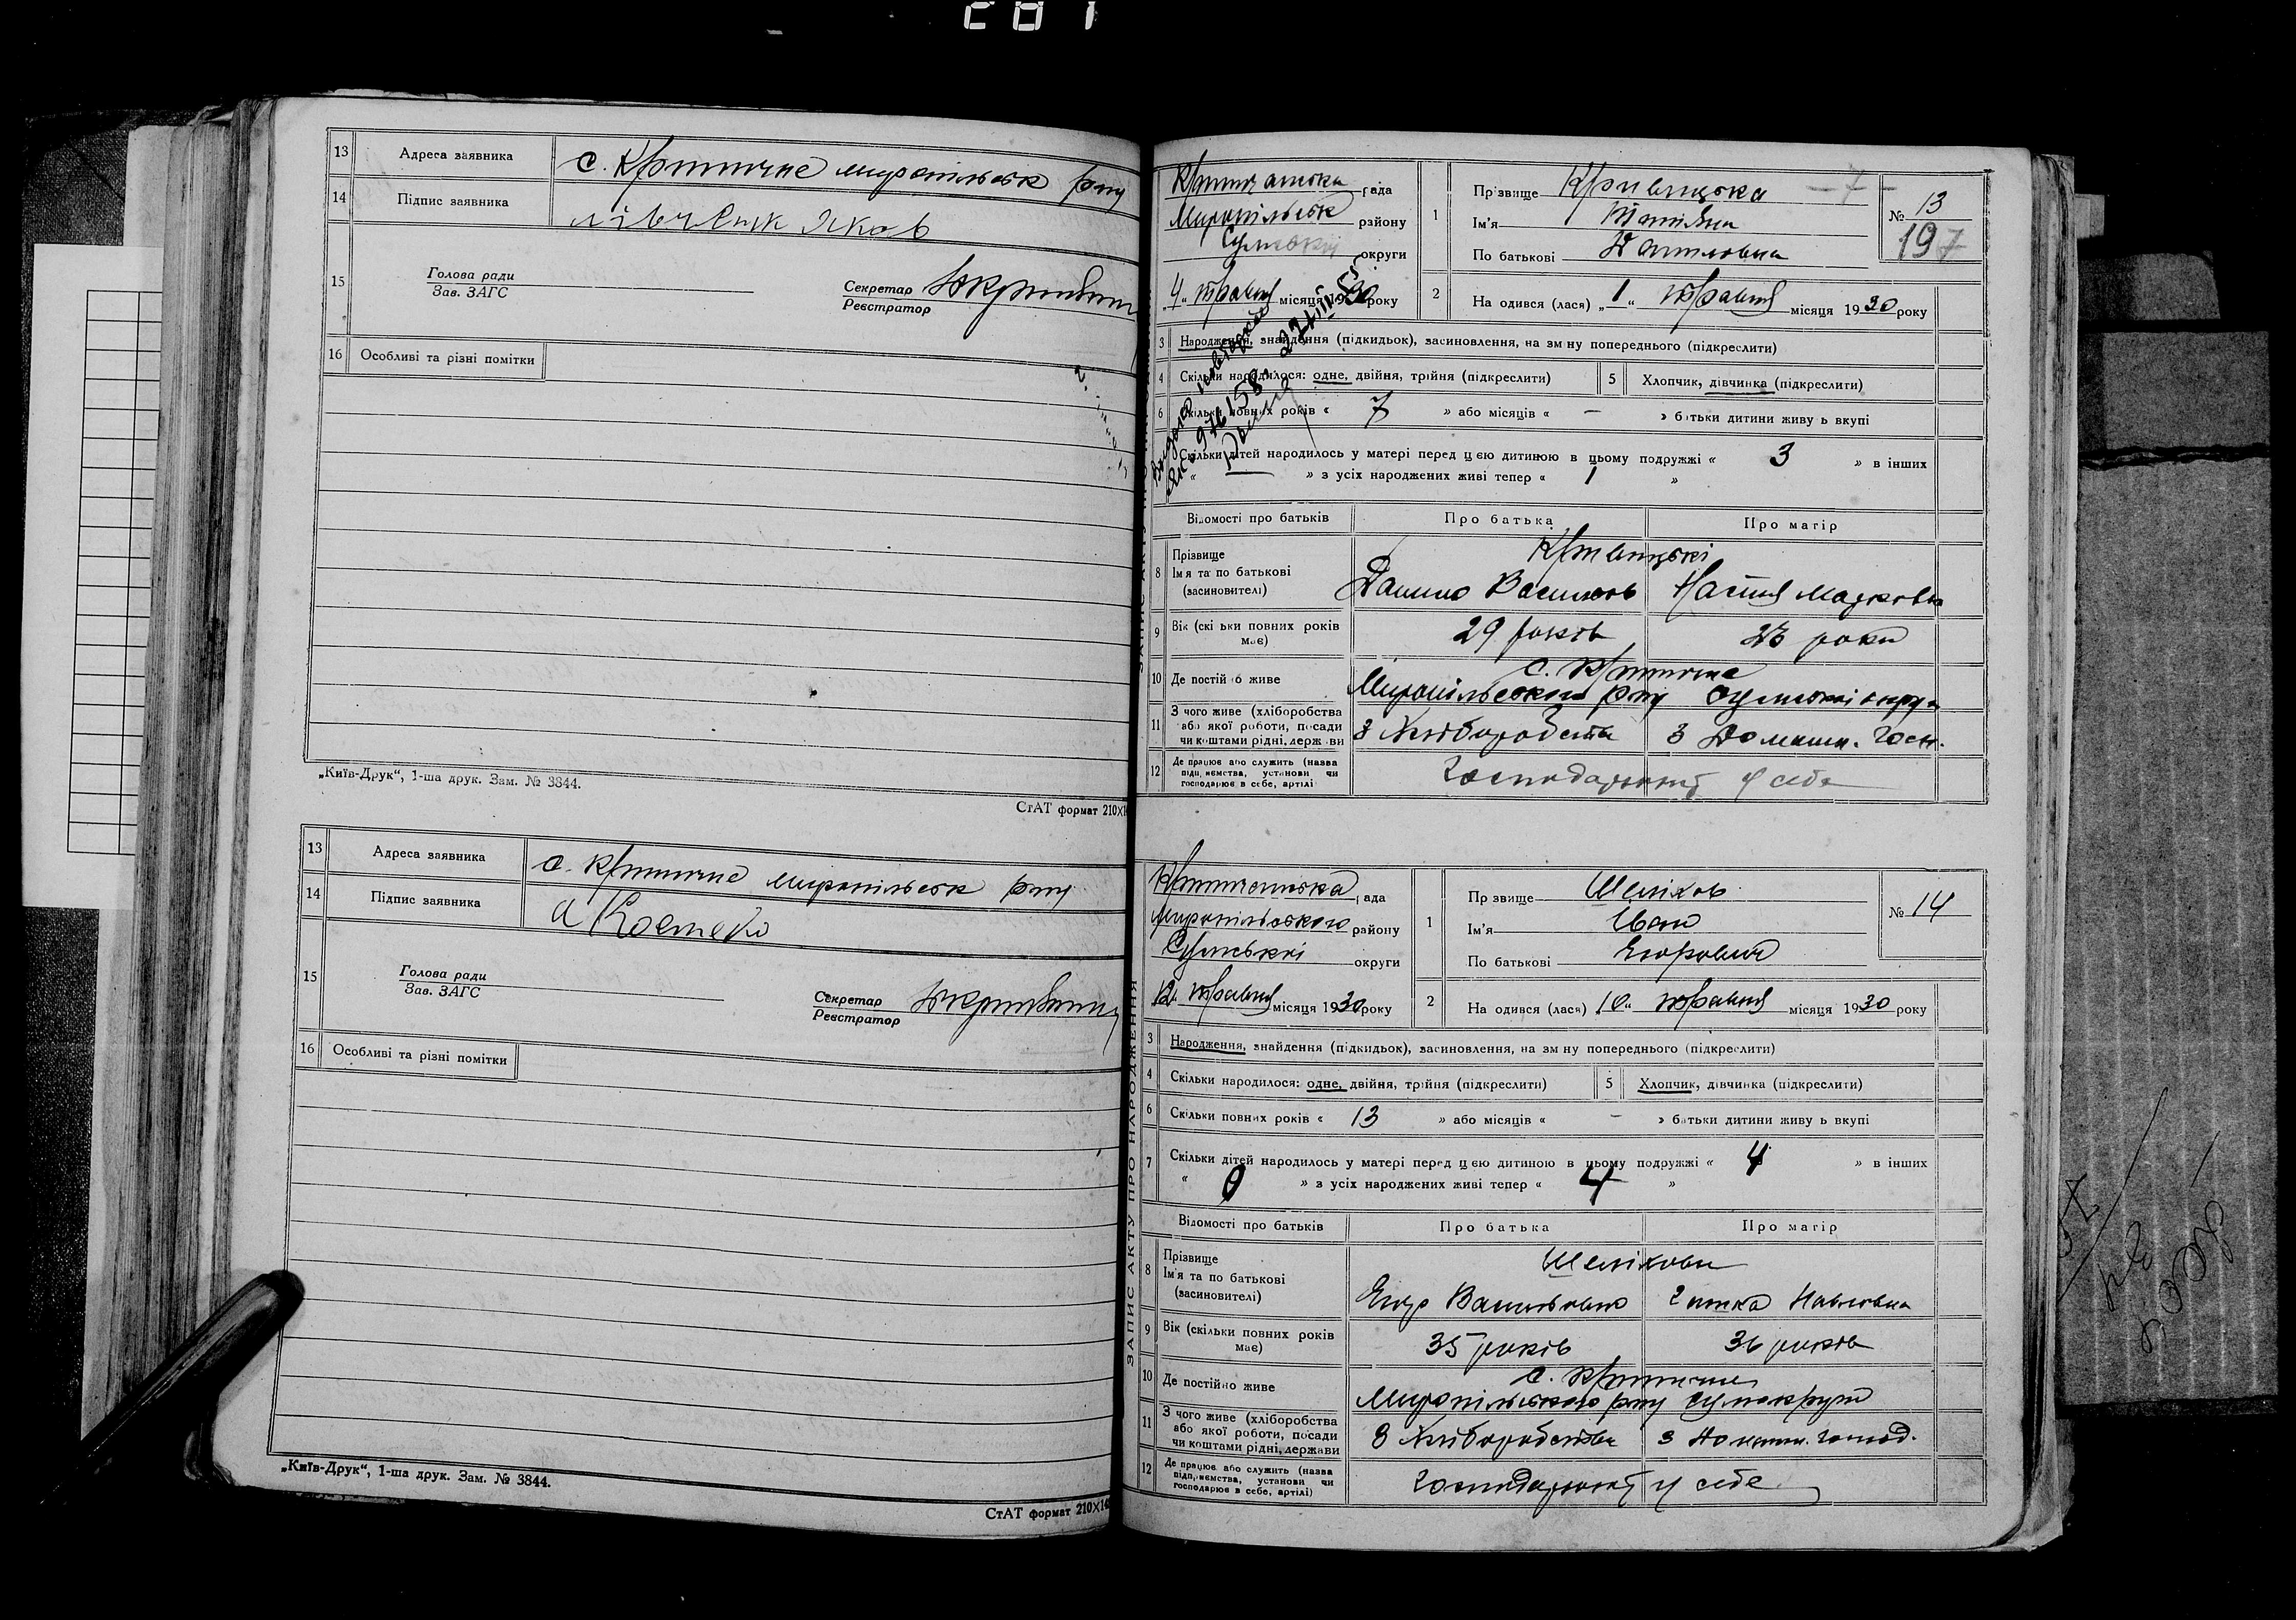 281
13 Адреса заявника с. Критичне миропільськ рну
14 Підпис заявника Яков
15 Голова ради
Зав. ЗАГС
Секретар
Реєстратор
16 Особливі та різні помітки
„Київ-Друк“, 1-ша друк. Зам. № 3844.
СтАТ формат 210X1
13 Адреса заявника с. Критичне миропільськ рну
14 Підпис заявника
15 Голова ради
Зав. ЗАГС
Секретар
Реєстратор
16 Особливі та різні помітки
„Київ-Друк“, 1-ша друк. Зам. № 3844.
СтАТ формат 210X14
ЗАПИС АКТУ ПРО НАРОДЖЕННЯ
рада
Миропільськ району
Сумської округи
„4„ травня місяця 1930 року
1 Прізвище Кривицька – 7 –
Ім'я Татіяна
По батькові Даниловна
№ 13
197
2 На одився (лася) „1“ травня місяця 1930 року
3 Народження, знайдення (підкидьок), засиновлення, на зм ну попереднього (підкреслити)
4 Скільки народилося: одне, двійня, трійня (підкреслити) 5 Хлопчик, дівчинка (підкреслити)
6 Скільки повних років « 7 » або місяців « – » батьки дитини живу ь вкупі
Скільки дітей народилось у матері перед ц єю дитиною в цьому подружжі « 3 » в інших
« – » з усіх народжених живі тепер « 1 »
Відомості про батьків Про батька Про матір
8 Прізвище
Ім я та по батькові
(засиновителі)
Кривицькі
Данило Васильов Настя Марковна
9 Вік (скі ьки повних років має) 29 років 23 роки
10 Де постій о живе с. Критичне
Миропільського рну Сумської округи
11 З чого живе (хліборобства
або якої роботи, посади
чи коштами рідні, держ ви
З хліборобства З Домашн. Госп.
12 Де працює або служить (назва
підп иємства, установи чи
господарює в себе, артілі
Господарюють у себе
рада
Миропільського району
Сумської округи
12„ травня місяця 1930 року
1 Пр звище Шеліхов
Ім'я Іван
По батькові Егорович
№ 14
2 На одився (лася) 10“ травня місяця 1930 року
3 Народження, знайдення (підкидьок), засиновлення, на зм ну попереднього (підкреслити)
4 Скільки народилося: одне, двійня, трійня (підкреслити) 5 Хлопчик, дівчинка (підкреслити)
6 Скільки повних років « 13 » або місяців « – » батьки дитини живу ь вкупі
7 Скільки дітей народилось у матері перед ц єю дитиною в цьому подружжі « 4 » в інших
« 0 » з усіх народжених живі тепер « 4 »
Відомості про батьків Про батька Про матір
8 Прізвище
Ім'я та по батькові
(засиновителі)
Шеліхови
Егор Васильович Павловна
9 Вік (скільки повних років має) 35 років 36 років
10 Де постійно живе с. Критичне
Миропільського рну Сумокруги
11 З чого живе (хліборобства
або якої роботи, посади
чи коштами рідні, держави
З хліборобства З Домашн. господ.
12 Де працює або служить (назва
підп иємства, установи чи
господарює в себе, артілі)
Господарюють у себе